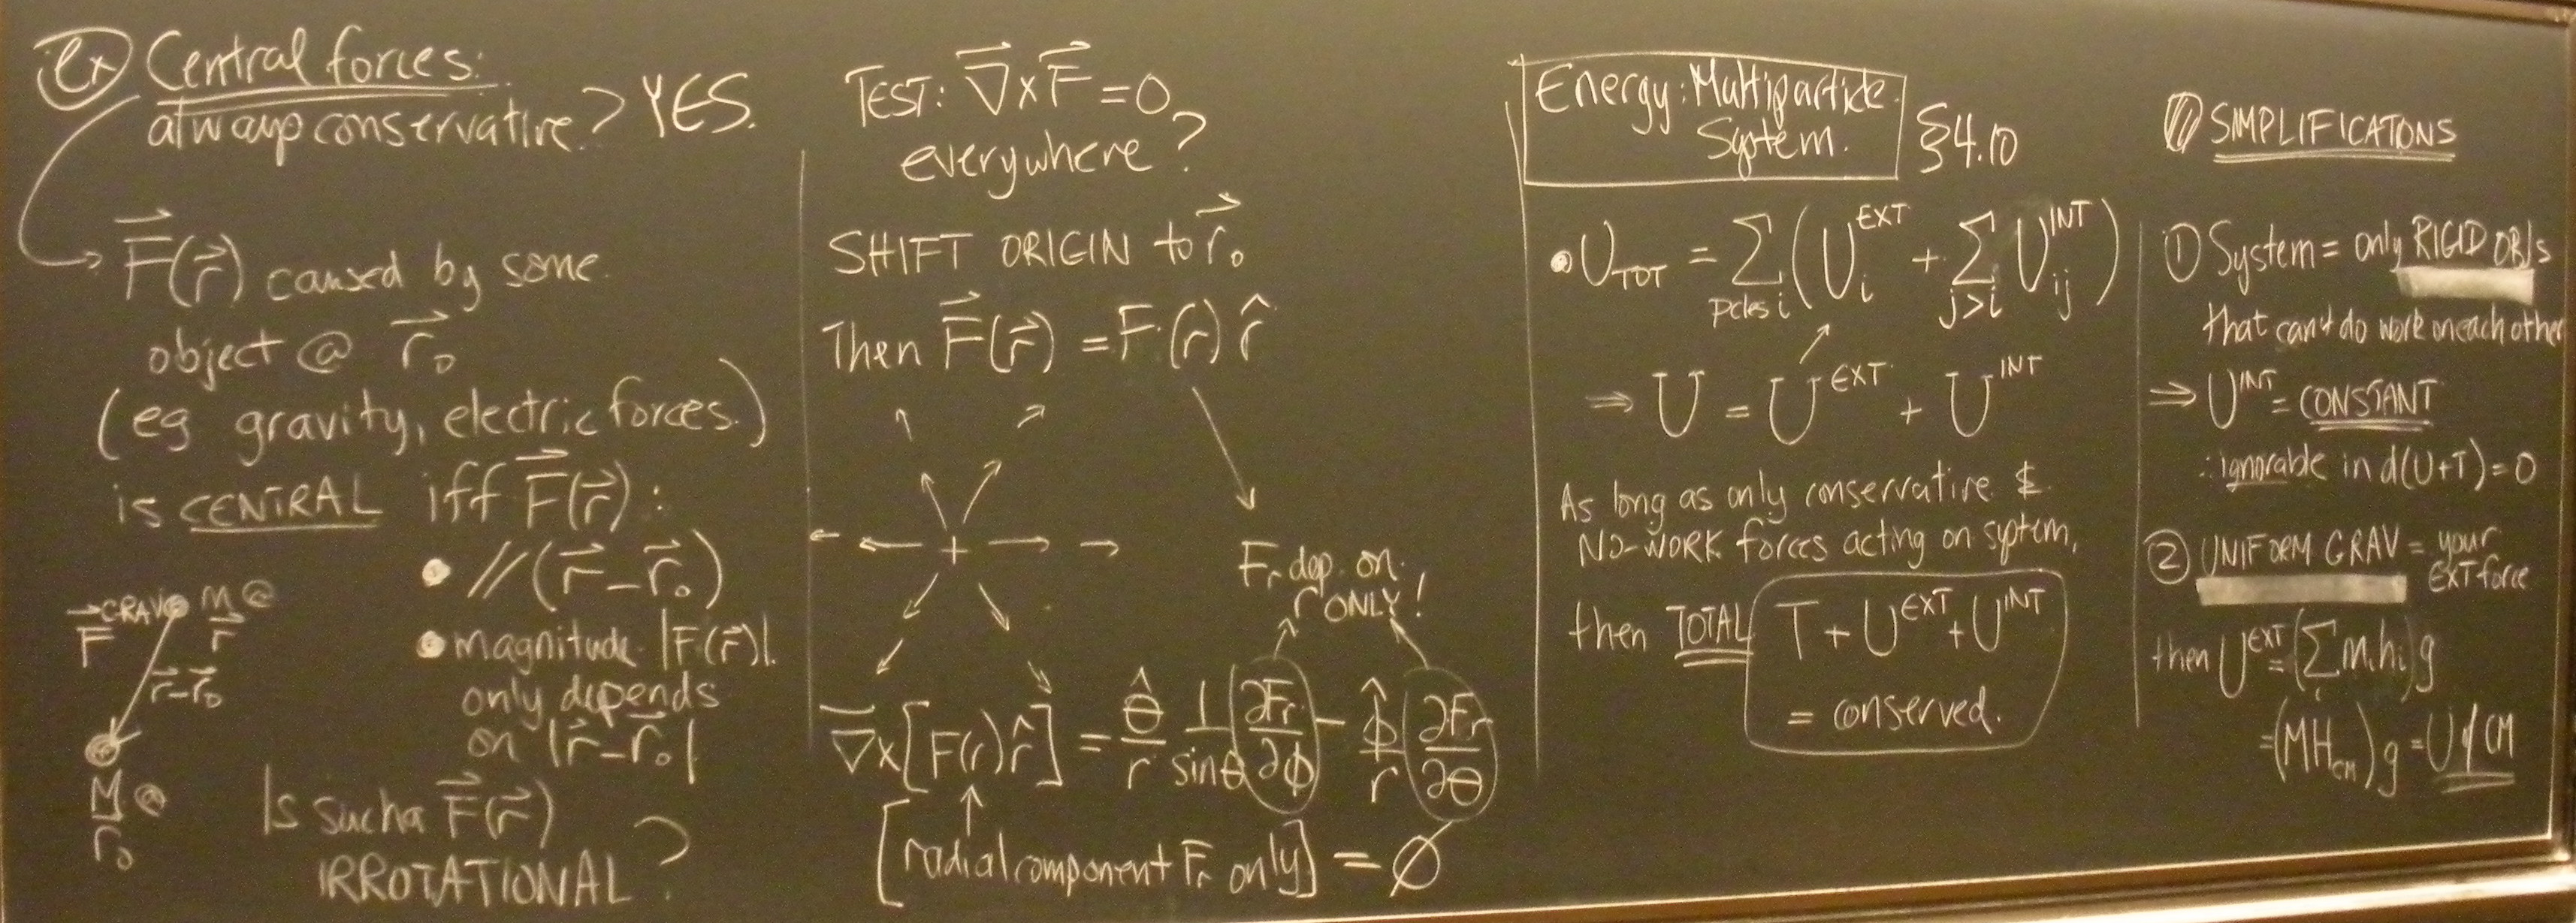 ex Central forces:
always conservative? YES.
F⃗(r⃗) caused by some
object @ r⃗₀
(eg gravity, electric forces.)
is CENTRAL iff F⃗(r⃗):
• // (r⃗ - r⃗₀)
• magnitude |F(r⃗)|
only depends
on |r⃗ - r⃗₀|
F⃗ GRAV m @ r⃗
r⃗ - r⃗₀
M @
r⃗₀
Is such a F⃗(r⃗)
IRROTATIONAL ?
TEST: ∇⃗ x F⃗ = 0
everywhere?
SHIFT ORIGIN to r⃗₀
Then F⃗(r⃗) = F(r) r̂
Fr dep. on
r ONLY!
∇⃗ x [F(r) r̂] = θ̂/r 1/sinθ ∂Fr/∂ϕ - ϕ̂/r ∂Fr/∂θ
[radial component Fr only] = ∅
Energy: Multiparticle
System. §4.10
• U_TOT = Σ_pcles i (U_i^EXT + Σ_j>i U_ij^INT)
⇒ U = U^EXT + U^INT
As long as only conservative &
NO-WORK forces acting on system,
then TOTAL T + U^EXT + U^INT
= conserved.
SIMPLIFICATONS
① System = only RIGID OBJs
that can't do work on each other
⇒ U^INT = CONSTANT
∴ ignorable in d(U+T) = 0
② UNIFORM GRAV = your
EXT force
then U^EXT = (Σ_i m_i h_i) g
= (MH_CM) g = U of CM